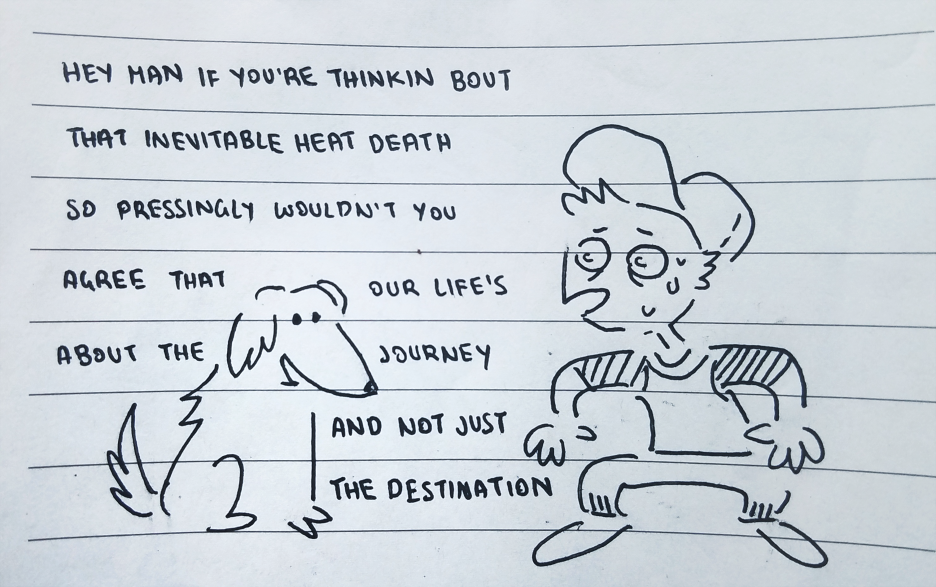 HEY MAN IF YOU'RE THINKIN BOUT
THAT INEVITABLE HEAT DEATH
SO PRESSINGLY WOULDN'T YOU
AGREE THAT OUR LIFE'S
ABOUT THE JOURNEY
AND NOT JUST
THE DESTINATION